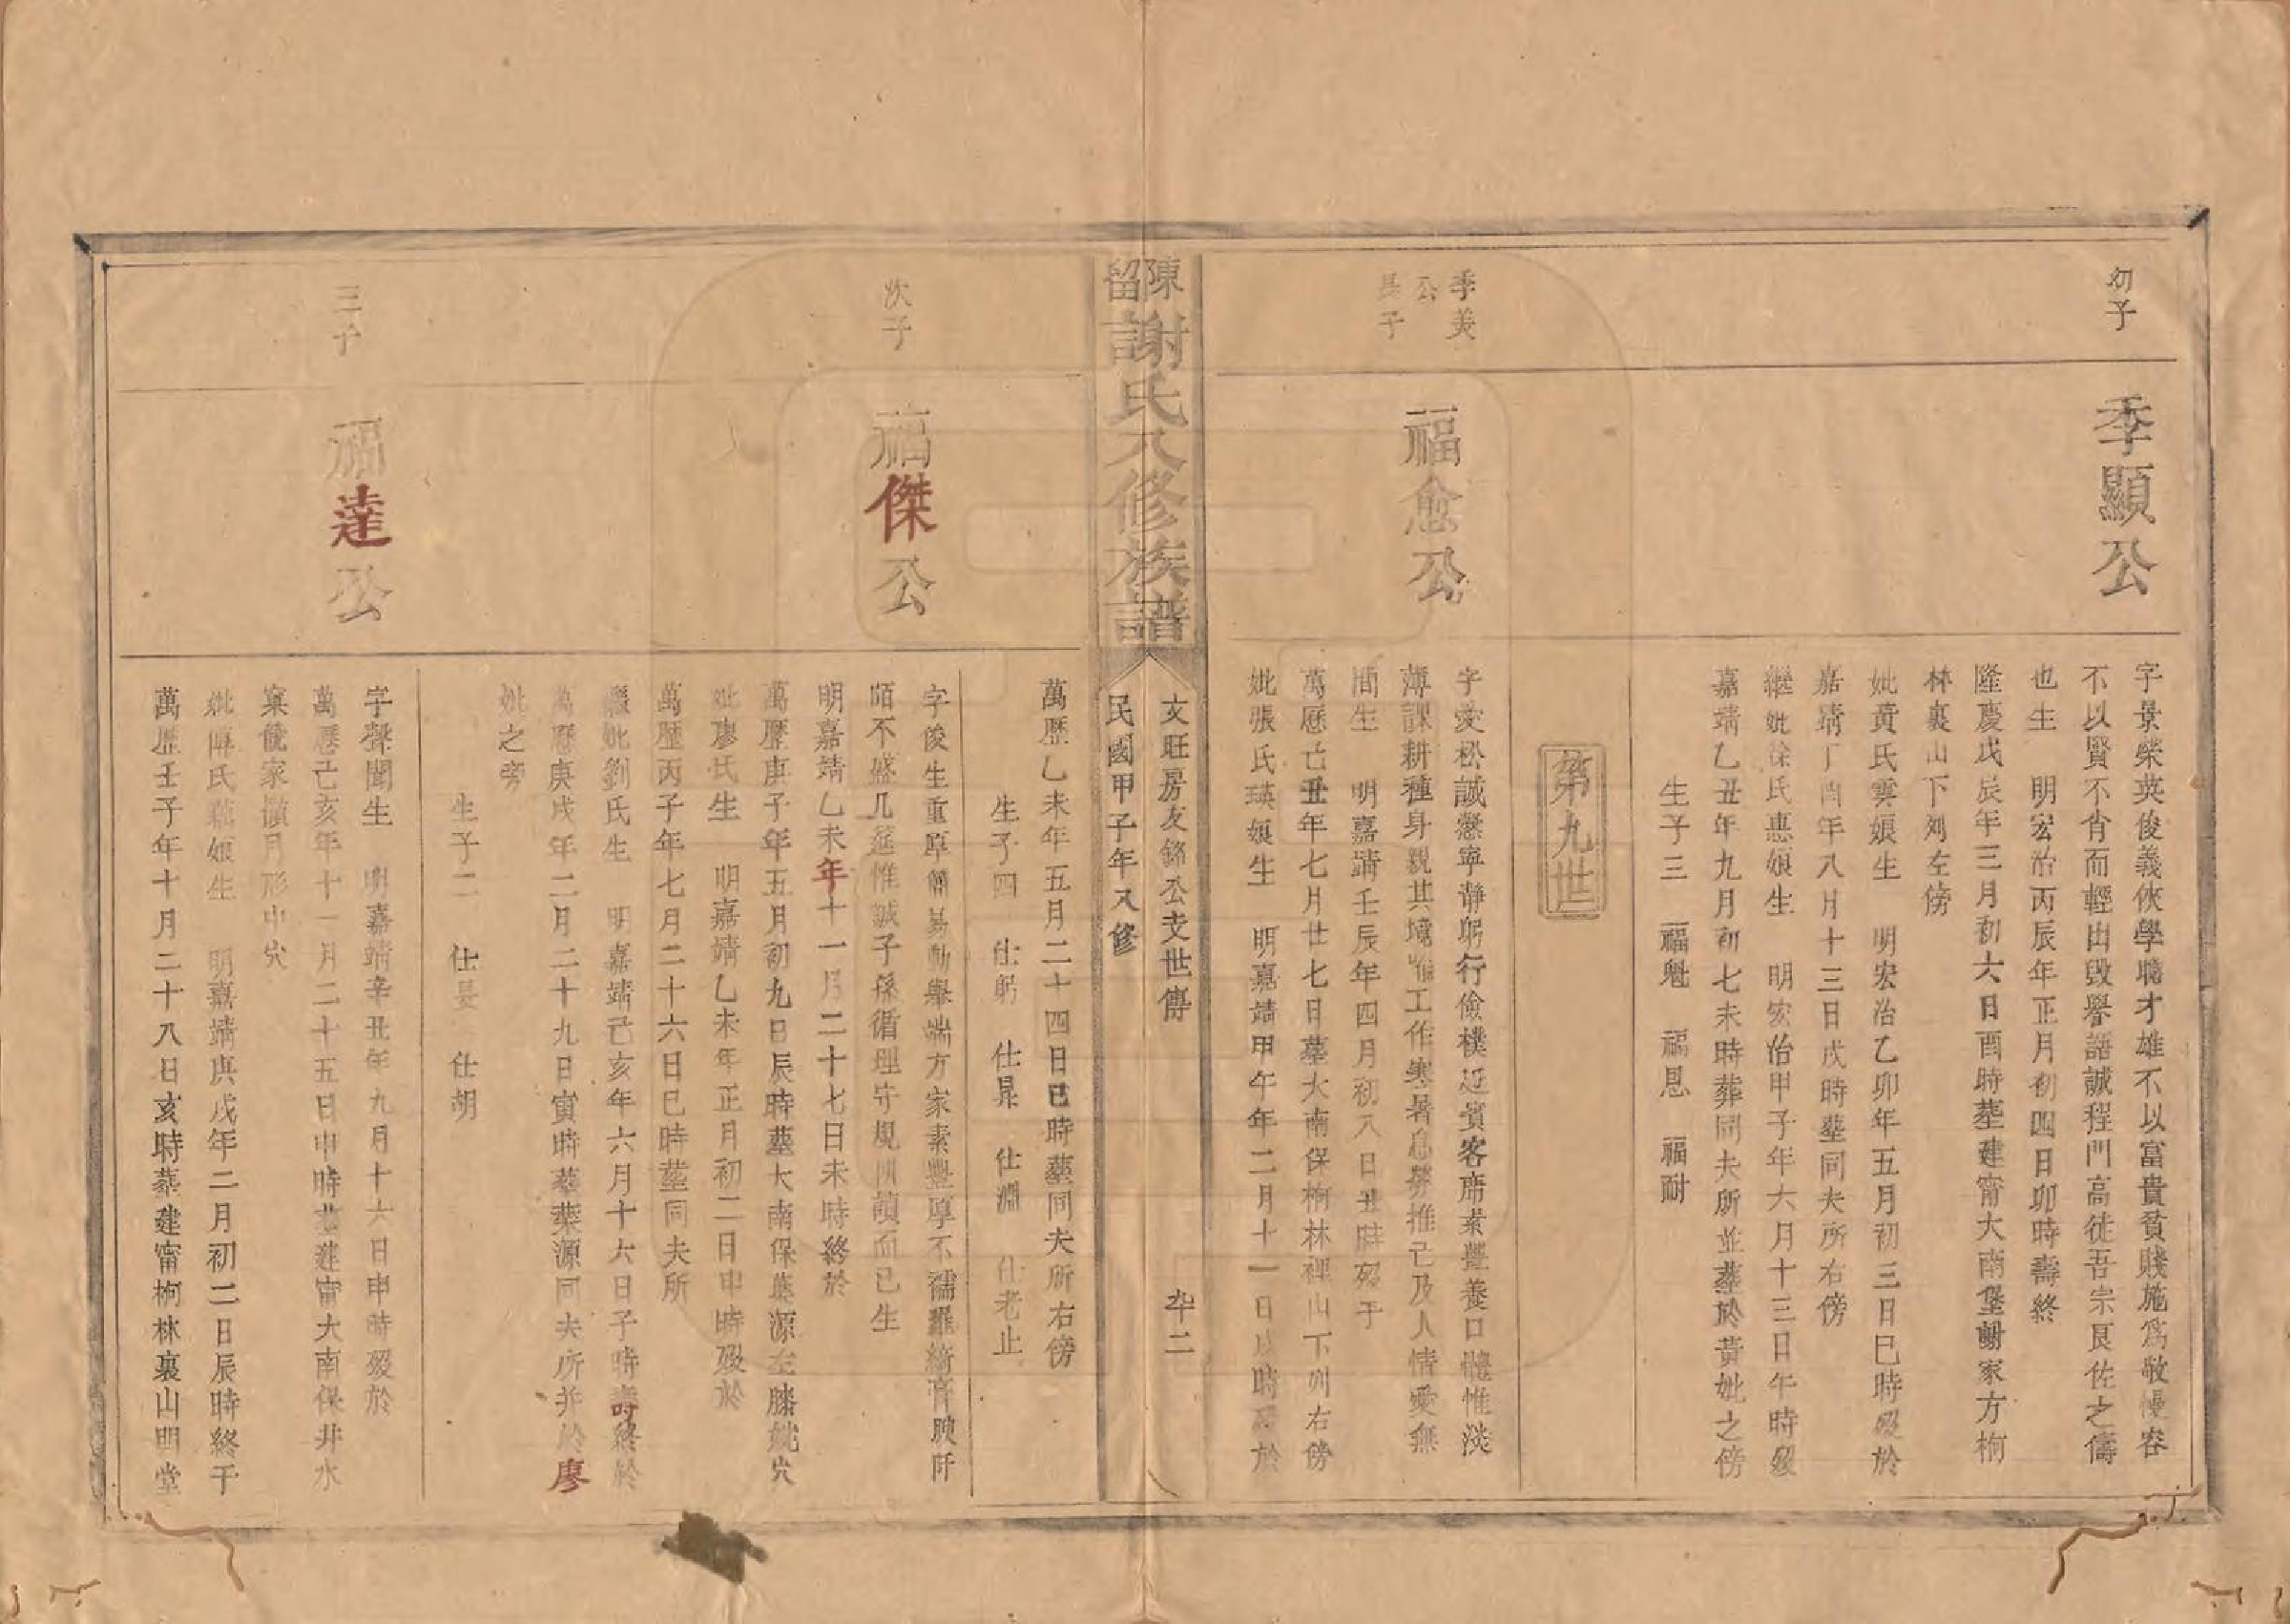 幼子
季顯公
字景榮英俊義俠學聰才雄不以富貴貧賤施爲敬慢容
不以賢不肖而輕出毀譽語誠程門高徒吾宗良佐之儔
也生　明宏治丙辰年正月初四日卯時壽終
隆慶戊辰年三月初六日酉時塟建甯大南堡謝家方柯
林裏山下列左傍
妣黃氏雲娘生　明宏治乙卯年五月初三日巳時歿於
嘉靖丁酉年八月十三日戌時塟同夫所右傍
繼妣徐氏惠娘生　明宏治甲子年六月十三日午時歿
嘉靖乙丑年九月初七未時葬同夫所並塟於黃妣之傍
生子三　福魁　福恩　福耐
第九世
季美
公
長子
福愈公
字愛松誠慤寧靜躬行儉樸延賓客席素豐養口體惟淡
薄課耕種身親其境工作寒暑息勞推己及人情愛無
間生　明嘉靖壬辰年四月初八日丑時歿于
萬歷己丑年七月廿七日塟大南保柯林裡山下列右傍
妣張氏瑛娘生　明嘉靖甲午年二月十一日時歿於
陳留謝氏八修族譜
文旺房友銘公支世傳
卆二
民國甲子年八修
萬歷乙未年五月二十四日巳時塟同夫所右傍
生子四　仕躬　仕昇　仕淵　仕老止
次子
福傑公
字俊生重厚簡易動舉端方家素豐厚不襦羅綺膏腴阡
陌不盛几筵惟誠子孫循理守規付囑而已生
明嘉靖乙未年十一月二十七日未時終於
萬歷庚子年五月初九日辰時塟大南保葉源左膝姚穴
妣廖氏生　明嘉靖乙未年正月初二日申時歿於
萬歷丙子年七月二十六日巳時塟同夫所
繼妣劉氏生　明嘉靖己亥年六月十六日子時壽終於
萬歷庚戌年二月二十九日寅時塟葉源同夫所并於廖
妣之旁
生子二　仕長　仕胡
三子
福達公
字聲聞生　明嘉靖辛丑年九月十六日申時歿於
萬歷己亥年十一月二十五日申時塟建甯大南保井水
窠家月形中穴
妣陳氏娘生　明嘉靖庚戌年二月初二日辰時終于
萬歷壬子年十月二十八日亥時塟建甯柯林裏山明堂